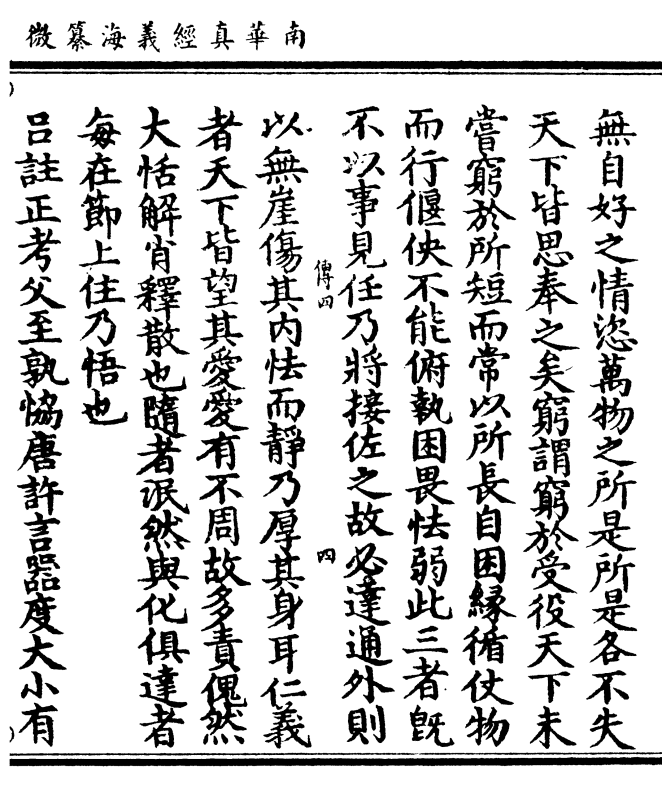 南華真經義海纂微
無自好之情恣萬物之所是所是各不失
天下皆思奉之矣窮謂窮於受役天下未
嘗窮於所短而常以所長自困緣循仗物
而行偃佒不能俯執困畏怯弱此三者旣
不以事見任乃將接佐之故必達通外則
以無崖傷其內怯而靜乃厚其身耳仁義
者天下皆望其愛愛有不周故多責傀然
大恬解肖釋散也隨者泯然與化俱達者
每在節上住乃悟也
呂註正考父至孰恊唐許言噐度大小有
傳四
四